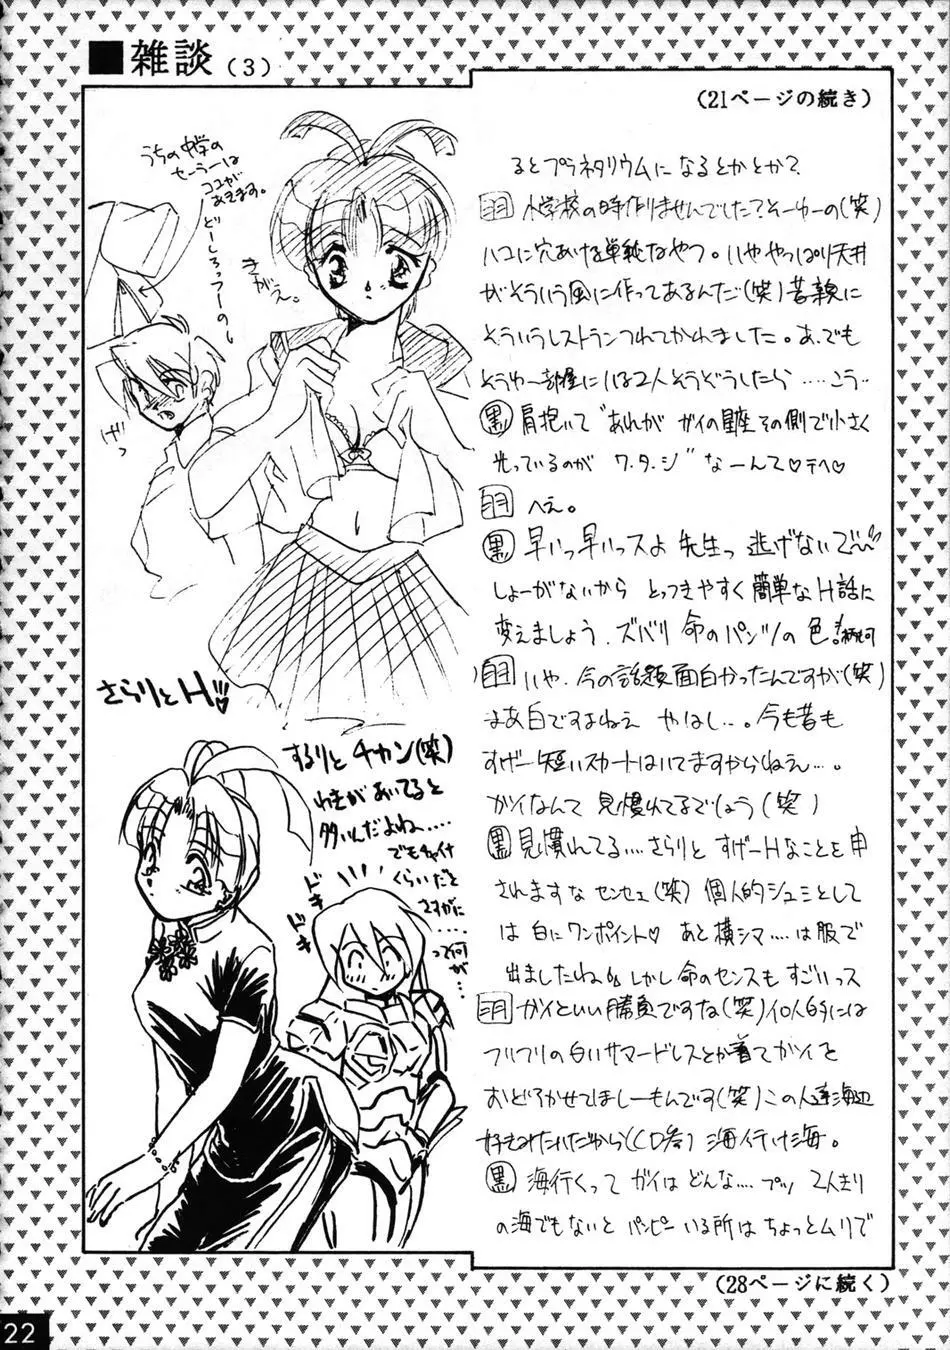 ■雑談（3）
（21ページの続き）
うちの中学の
セーラーは
ココが
あきます。
どーしろっつーのー
きがえ。
げっ
さらりとH♡
するりとチカン(笑)
わきがあいてると
多いんだよね....
でもチャイナ
くらいだと
さすがに
.....
って何
が...
ドキ
ドキ
るとプラネタリウムになるとかとか?
小学校の時作りませんでした?そーゆーの(笑)
ハコに穴あける単純なやつ。いややっぱり天井
がそういう風に作ってあるんだ(笑)昔親に
そういうレストランつれてかれました。あ、でも
そうゆー部屋にいる2人そうぞうしたら....こう..
黒 肩抱いて"あれが ガイの星座その側で小さく
光っているのが ワ・タ・シ"なーんて♡テヘ♡
へえ。
黒 早いっ早いっスよ 先生っ 逃げないで〜
しょーがないから とっつきやすく簡単なH話に
変えましょう。ズバリ 命のパンツの色!
いや、今の話題面白かったんですが(笑)
まあ白ですよねぇ やはし...。今も昔も
すげー短いスカートはいてますからねえ...。
ガイなんて 見慣れてるでしょう(笑)
黒 見慣れてる....さらりと すげーHなことを申
されますな センセェ(笑) 個人的シュミとして
は 白にワンポイント♡ あと横シマ....は服で
出ましたね。しかし命のセンスも すごいっス
ガイといい勝負ですな(笑)個人的には
フリフリの白いサマードレスとか着てガイを
おどろかせてほしーもんです(笑)この人達海辺
好きみたいだから(CD参)海行け海。
黒 海行くって ガイは どんな....プッ 2人きり
の海でもないと パンピー いる所は ちょっとムリで
（28ページに続く）
22